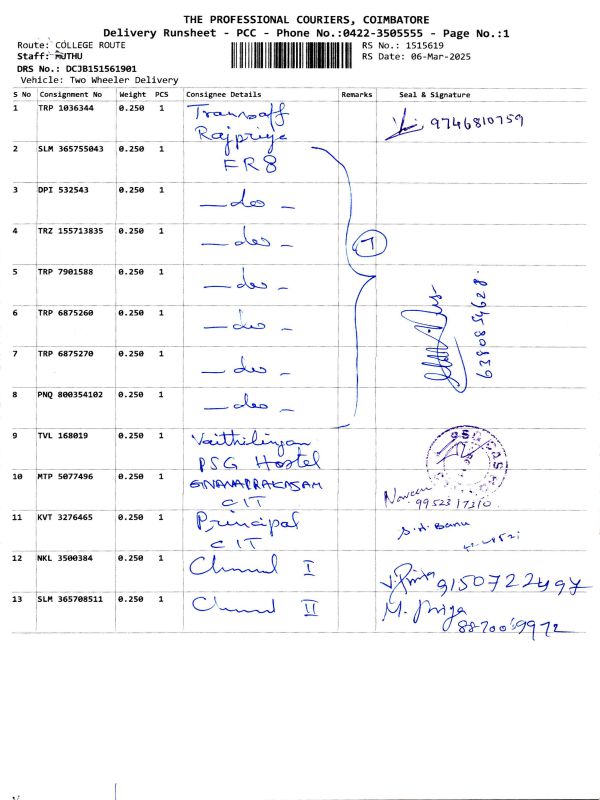 THE PROFESSIONAL COURIERS, COIMBATORE
Delivery Runsheet - PCC - Phone No.:0422-3505555 - Page No.:1
Route: COLLEGE ROUTE
RS No.: 1515619
Staff: MUTHU
RS Date: 06-Mar-2025
DRS No.: DCJB151561901
Vehicle: Two Wheeler Delivery
S No Consignment No Weight PCS Consignee Details Remarks Seal & Signature
1 TRP 1036344 0.250 1
Rajpriya
9746810759
2 SLM 365755043 0.250 1 FR8
3 DPI 532543 0.250 1 -do-
4 TRZ 155713835 0.250 1 -do- 7
5 TRP 7901588 0.250 1 -do-
6 TRP 6875260 0.250 1 -do-
6380854628
7 TRP 6875270 0.250 1 -do-
8 PNQ 800354102 0.250 1 -do-
9 TVL 168019 0.250 1 Vaithilingam
PSG Hostel
10 MTP 5077496 0.250 1 GNANAPRAKASAM
CIT
Naveen
9952317310
11 KVT 3276465 0.250 1 Principal
CIT
S.H. Banu
12 NKL 3500384 0.250 1 I
9150722497
13 SLM 365708511 0.250 1 II
M. Priya